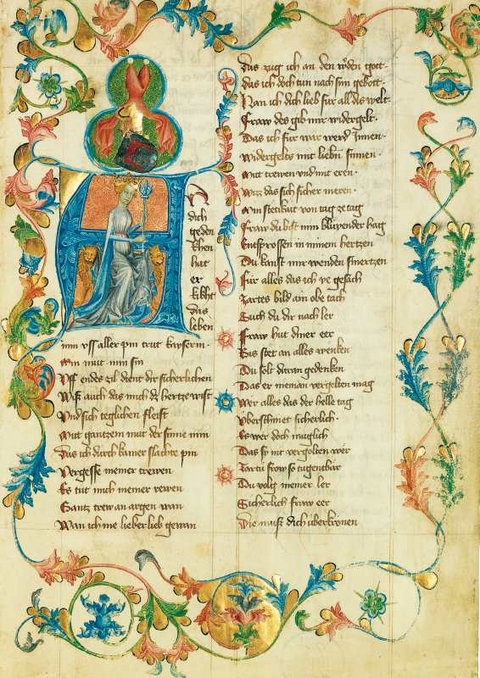 dich
geden
khen
hat
er
das
leben
min mut min sin
Uss endes zil dient dir sicherlichen
Wiss auch das mich da hertze
Und sich teglichen fleist
Mit gantzem mut der sinne min
Das ich durch kainer slachte pin
Vergesse meiner trewen
Es tut mich niemer rewen
Gantz trew an argen wan
Wan ich nie lieber lieb gewan
Das zug ich an den got
das ich doch tun nach sim gebott
Nan ich dich lieb fur all dis welt
Fraw des gib mir widergelt
Das ich fur war werd Jnnen
Widergelts mit liebn sinnen
Mit trewen und mit eren
Waz das sich sicher meren
Min stenhait von tag ze tag
Fraw du bist min bluyender hag
Entsprossen in minem hertzen
Du kanst mir wenden smertzen
Fur alles das ich ye gesach
Zartes bild ain obe tach
Such du dir nach ler
Fraw hut diner eer
Bis stet an alles wenken
Du solt daran gedenken
Das er nieman vergolten mag
Wer alles das der helle tag
Uberschinet sicherlich
Es wer doch muglich
Das so nit vergolten wer
Zarti frow so tugentbar
Du volg meiner ler
Sicherlich fraw eer
Die muss dich uberkronen